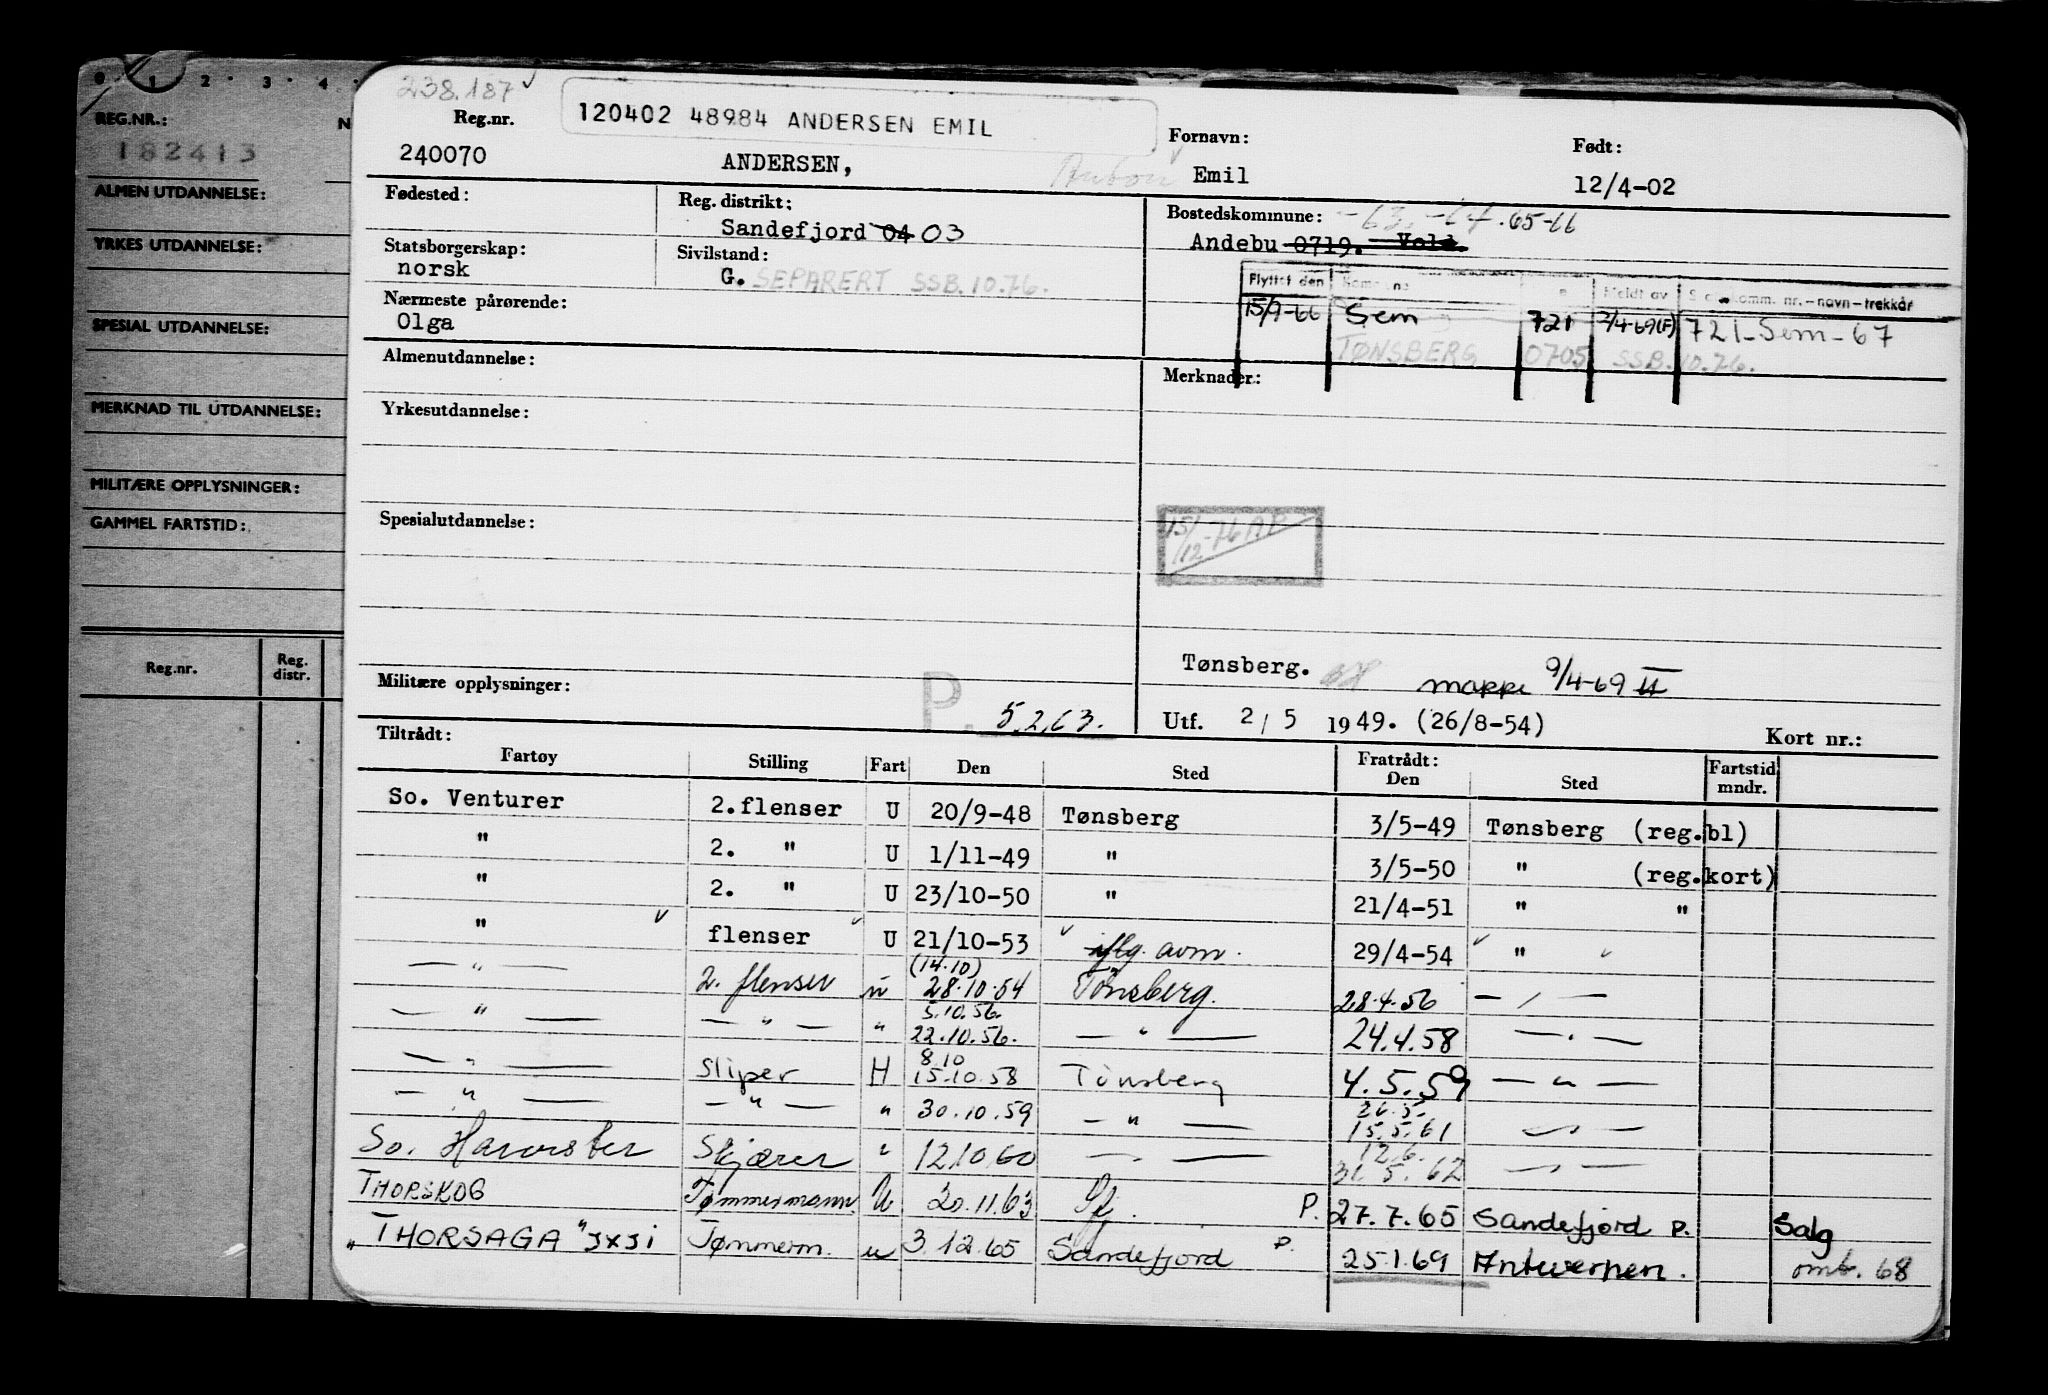 0 1 2 · 3 · 4 ·
REG.NR.: N
182413
ALMEN UTDANNELSE:
YRKES UTDANNELSE:
SPESIAL UTDANNELSE:
MERKNAD TIL UTDANNELSE:
MILITÆRE OPPLYSNINGER:
GAMMEL FARTSTID:
Reg.nr. Reg. distr.
238.187
120402 48984 ANDERSEN EMIL
Reg.nr. Fornavn: Født:
240070 ANDERSEN, Anton Emil 12/4-02
Fødested: Reg. distrikt: Bostedskommune: -63.-64.65-66
Sandefjord 04 03 Andebu 0719. Vold.
Statsborgerskap: Sivilstand:
norsk G. SEPARERT SSB.10.76.
Flyttet den Kommune Meldt av Skattekomm. nr.-navn-trekkår
Nærmeste pårørende: 15/9-66 Sem 721 2/4-69(F) 721-Sem-67
Olga TØNSBERG 0705 SSB.10.76.
Almenutdannelse: Merknader:
Yrkesutdannelse:
Spesialutdannelse: 15/12-76 AB
Tønsberg. mappe 9/4-69 II
Militære opplysninger: P. 5.2.63. Utf. 2/5 1949. (26/8-54) Kort nr.:
Tiltrådt: Fratrådt:
Fartøy Stilling Fart Den Sted Den Sted Fartstid mndr.
So. Venturer 2.flenser U 20/9-48 Tønsberg 3/5-49 Tønsberg (reg.bl)
" 2. " U 1/11-49 " 3/5-50 " (reg.kort)
" 2. " U 23/10-50 " 21/4-51 " "
" flenser U 21/10-53 iflg. avm. 29/4-54 "
(14.10)
— " — 2. flenser u 28.10.54 Tønsberg. 28.4.56 — " —
5.10.56.
— " — — " — " 22.10.56. — " — 24.4.58 — " —
8.10
— " — Sliper H 15.10.58 Tønsberg 4.5.59 — " —
26.5.
— " — — " — " 30.10.59 — " — 15.5.61 — " —
12.6.
So. Harvester Skjærer " 12.10.60 — " — 31.5.62 — " —
THORSKOG Tømmermann U 20.11.63 Sfj. P. 27.7.65 Sandefjord P. Salg
"THORSAGA" JXJI Tømmerm. u 3.12.65 Sandefjord P. 25.1.69 Antwerpen. omb. 68